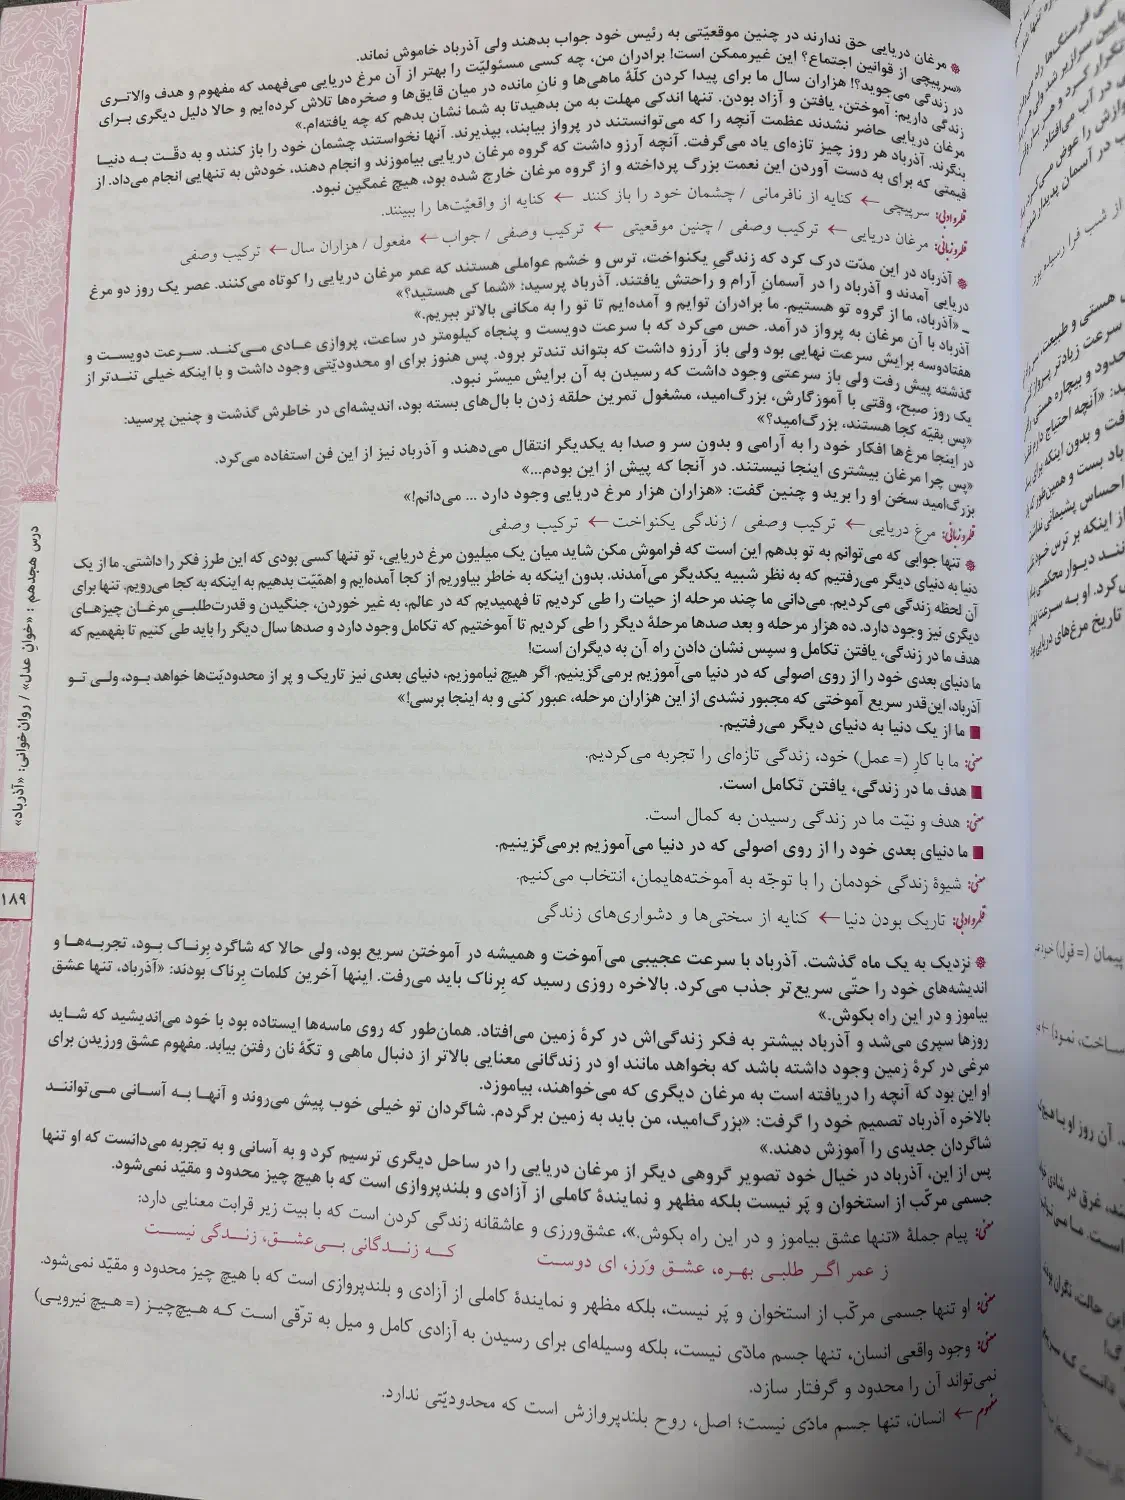 ❋ مرغان دریایی حق ندارند در چنین موقعیّتی به رئیس خود جواب بدهند ولی آذرباد خاموش نماند.
«سرپیچی از قوانین اجتماع؟ این غیرممکن است! برادران من، چه کسی مسئولیّت را بهتر از آن مرغ دریایی می‌فهمد که مفهوم و هدف والاتری
در زندگی می‌جوید؟! هزاران سال ما برای پیدا کردن کلّهٔ ماهی‌ها و نان مانده در میان قایق‌ها و صخره‌ها تلاش کرده‌ایم و حالا دلیل دیگری برای
زندگی داریم: آموختن، یافتن و آزاد بودن. تنها اندکی مهلت به من بدهید تا به شما نشان بدهم که چه یافته‌ام.»
مرغان دریایی حاضر نشدند عظمت آنچه را که می‌توانستند در پرواز بیابند، بپذیرند. آنها نخواستند چشمان خود را باز کنند و به دقّت به دنیا
بنگرند. آذرباد هر روز چیز تازه‌ای یاد می‌گرفت. آنچه آرزو داشت که گروه مرغان دریایی بیاموزند و انجام دهند، خودش به تنهایی انجام می‌داد. از
قیمتی که برای به دست آوردن این نعمت بزرگ پرداخته و از گروه مرغان خارج شده بود، هیچ غمگین نبود.
قلمرو ادبی: سرپیچی ← کنایه از نافرمانی / چشمان خود را باز کنند ← کنایه از واقعیّت‌ها را ببینند.
قلمرو زبانی: مرغان دریایی ← ترکیب وصفی / چنین موقعیتی ← ترکیب وصفی / جواب ← مفعول / هزاران سال ← ترکیب وصفی
❋ آذرباد در این مدّت درک کرد که زندگیِ یکنواخت، ترس و خشم عواملی هستند که عمر مرغان دریایی را کوتاه می‌کنند. عصر یک روز دو مرغ
دریایی آمدند و آذرباد را در آسمانِ آرام و راحتش یافتند. آذرباد پرسید: «شما کی هستید؟»
ـ «آذرباد، ما از گروه تو هستیم. ما برادران توایم و آمده‌ایم تا تو را به مکانی بالاتر ببریم.»
آذرباد با آن مرغان به پرواز درآمد. حس می‌کرد که با سرعت دویست و پنجاه کیلومتر در ساعت، پروازی عادی می‌کند. سرعت دویست و
هفتادوسه برایش سرعت نهایی بود ولی باز آرزو داشت که بتواند تندتر برود. پس هنوز برای او محدودیّتی وجود داشت و با اینکه خیلی تندتر از
گذشته پیش رفت ولی باز سرعتی وجود داشت که رسیدن به آن برایش میسّر نبود.
یک روز صبح، وقتی با آموزگارش، بزرگ‌امید، مشغول تمرین حلقه زدن با بال‌های بسته بود، اندیشه‌ای در خاطرش گذشت و چنین پرسید:
«پس بقیّه کجا هستند، بزرگ‌امید؟»
در اینجا مرغ‌ها افکار خود را به آرامی و بدون سر و صدا به یکدیگر انتقال می‌دهند و آذرباد نیز از این فن استفاده می‌کرد.
«پس چرا مرغان بیشتری اینجا نیستند. در آنجا که پیش از این بودم...»
بزرگ‌امید سخن او را برید و چنین گفت: «هزاران هزار مرغ دریایی وجود دارد ... می‌دانم!»
قلمرو زبانی: مرغ دریایی ← ترکیب وصفی / زندگی یکنواخت ← ترکیب وصفی
❋ تنها جوابی که می‌توانم به تو بدهم این است که فراموش مکن شاید میان یک میلیون مرغ دریایی، تو تنها کسی بودی که این طرز فکر را داشتی. ما از یک
دنیا به دنیای دیگر می‌رفتیم که به نظر شبیه یکدیگر می‌آمدند. بدون اینکه به خاطر بیاوریم از کجا آمده‌ایم و اهمّیّت بدهیم به اینکه به کجا می‌رویم. تنها برای
آن لحظه زندگی می‌کردیم. می‌دانی ما چند مرحله از حیات را طی کردیم تا فهمیدیم که در عالم، به غیر خوردن، جنگیدن و قدرت‌طلبیِ مرغان چیزهای
دیگری نیز وجود دارد. ده هزار مرحله و بعد صدها مرحلهٔ دیگر را طی کردیم تا آموختیم که تکامل وجود دارد و صدها سال دیگر را باید طی کنیم تا بفهمیم که
هدف ما در زندگی، یافتن تکامل و سپس نشان دادن راه آن به دیگران است!
ما دنیای بعدی خود را از روی اصولی که در دنیا می‌آموزیم برمی‌گزینیم. اگر هیچ نیاموزیم، دنیای بعدی نیز تاریک و پر از محدودیّت‌ها خواهد بود، ولی تو
آذرباد، این‌قدر سریع آموختی که مجبور نشدی از این هزاران مرحله، عبور کنی و به اینجا برسی!»
■ ما از یک دنیا به دنیای دیگر می‌رفتیم.
معنی: ما با کارِ (= عمل) خود، زندگی تازه‌ای را تجربه می‌کردیم.
■ هدف ما در زندگی، یافتن تکامل است.
معنی: هدف و نیّت ما در زندگی رسیدن به کمال است.
■ ما دنیای بعدی خود را از روی اصولی که در دنیا می‌آموزیم برمی‌گزینیم.
معنی: شیوهٔ زندگی خودمان را با توجّه به آموخته‌هایمان، انتخاب می‌کنیم.
قلمرو ادبی: تاریک بودن دنیا ← کنایه از سختی‌ها و دشواری‌های زندگی
❋ نزدیک به یک ماه گذشت. آذرباد با سرعت عجیبی می‌آموخت و همیشه در آموختن سریع بود، ولی حالا که شاگرد بِرناک بود، تجربه‌ها و
اندیشه‌های خود را حتّی سریع‌تر جذب می‌کرد. بالاخره روزی رسید که بِرناک باید می‌رفت. اینها آخرین کلمات بِرناک بودند: «آذرباد، تنها عشق
بیاموز و در این راه بکوش.»
روزها سپری می‌شد و آذرباد بیشتر به فکر زندگی‌اش در کرهٔ زمین می‌افتاد. همان‌طور که روی ماسه‌ها ایستاده بود با خود می‌اندیشید که شاید
مرغی در کرهٔ زمین وجود داشته باشد که بخواهد مانند او در زندگانی معنایی بالاتر از دنبال ماهی و تکّهٔ نان رفتن بیابد. مفهوم عشق ورزیدن برای
او این بود که آنچه را دریافته است به مرغان دیگری که می‌خواهند، بیاموزد.
بالاخره آذرباد تصمیم خود را گرفت: «بزرگ‌امید، من باید به زمین برگردم. شاگردان تو خیلی خوب پیش می‌روند و آنها به آسانی می‌توانند
شاگردان جدیدی را آموزش دهند.»
پس از این، آذرباد در خیال خود تصویر گروهی دیگر از مرغان دریایی را در ساحل دیگری ترسیم کرد و به آسانی و به تجربه می‌دانست که او تنها
جسمی مرکّب از استخوان و پَر نیست بلکه مظهر و نمایندهٔ کاملی از آزادی و بلندپروازی است که با هیچ چیز محدود و مقیّد نمی‌شود.
معنی: پیام جملهٔ «تنها عشق بیاموز و در این راه بکوش.»، عشق‌ورزی و عاشقانه زندگی کردن است که با بیت زیر قرابت معنایی دارد:
ز عمر اگر طلبی بهره، عشق ورَز، ای دوست که زندگانی بی‌عشق، زندگی نیست
معنی: او تنها جسمی مرکّب از استخوان و پَر نیست، بلکه مظهر و نمایندهٔ کاملی از آزادی و بلندپروازی است که با هیچ چیز محدود و مقیّد نمی‌شود.
معنی: وجود واقعی انسان، تنها جسم مادّی نیست، بلکه وسیله‌ای برای رسیدن به آزادی کامل و میل به ترقّی است که هیچ‌چیز (= هیچ نیرویی)
نمی‌تواند آن را محدود و گرفتار سازد.
مفهوم ← انسان، تنها جسم مادّی نیست؛ اصل، روح بلندپروازش است که محدودیّتی ندارد.
درس هجدهم: «خوانِ عدل» / روان‌خوانی: «آذرباد»
۱۸۹